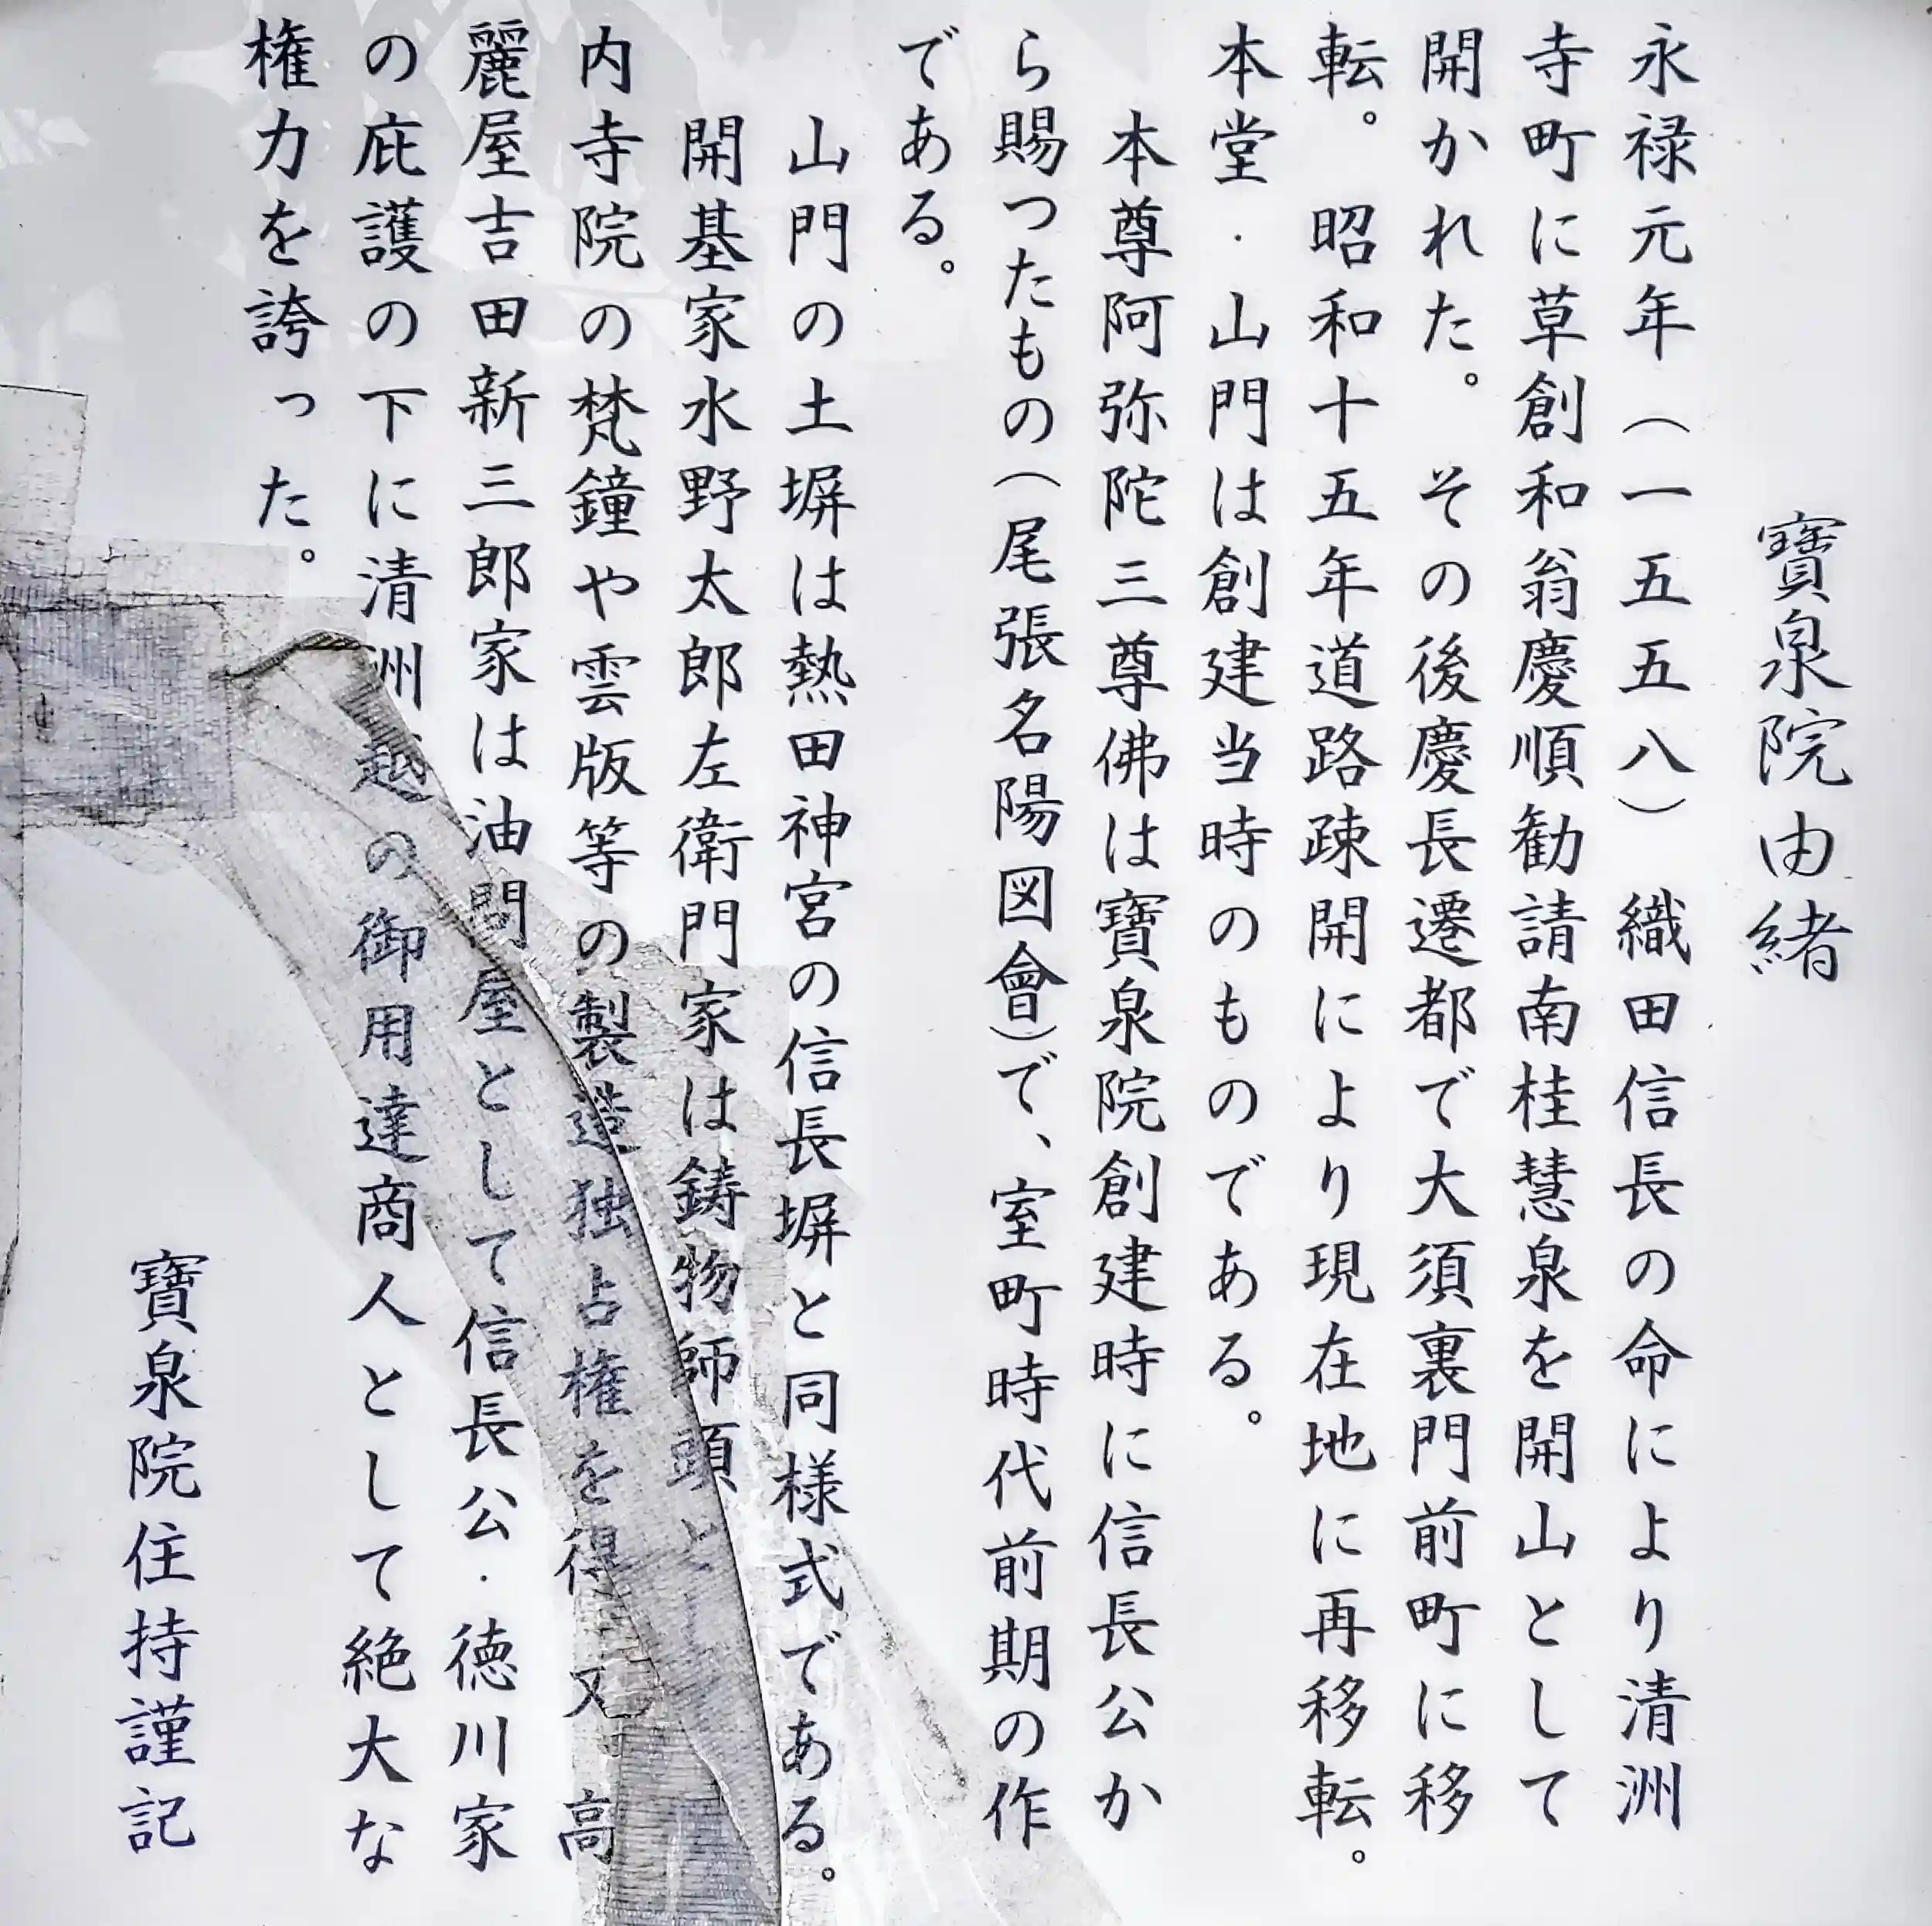 寶泉院由緒
永禄元年（一五五八）織田信長の命により清洲
寺町に草創和翁慶順勧請南桂慧泉を開山として
開かれた。その後慶長遷都で大須裏門前町に移
転。昭和十五年道路疎開により現在地に再移転。
本堂・山門は創建当時のものである。
本尊阿弥陀三尊佛は寶泉院創建時に信長公か
ら賜つたもの（尾張名陽図會）で、室町時代前期の作
である。
山門の土塀は熱田神宮の信長塀と同様式である。
開基家水野太郎左衛門家は鋳物師頭として
内寺院の梵鐘や雲版等の製造独占権を得又高
麗屋吉田新三郎家は油問屋として信長公・徳川家
の庇護の下に清洲越の御用達商人として絶大な
権力を誇った。
寶泉院住持謹記